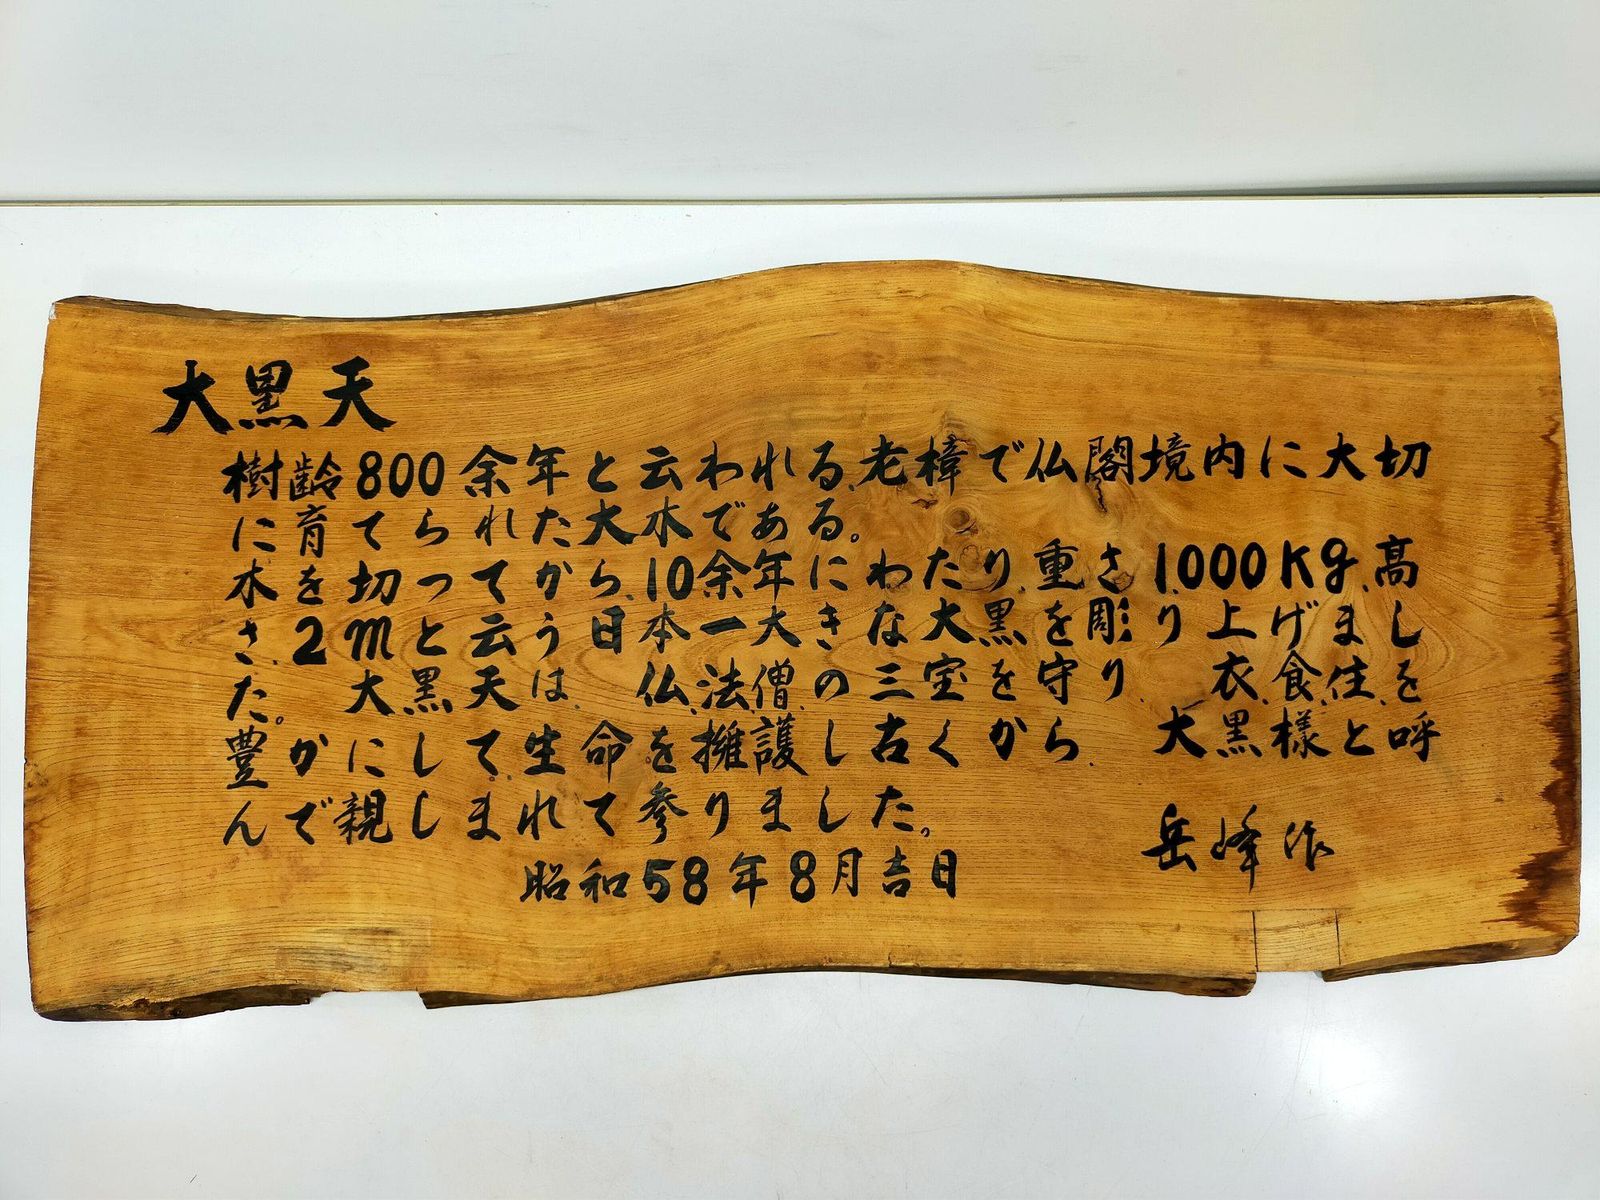 大黒天
樹齢800余年と云われる、老樟で仏閣境内に大切
に育てられた大木である。
木を切ってから、10余年にわたり、重さ1000Kg、高
さ2mと云う日本一大きな大黒を彫り上げまし
た。大黒天は、仏、法、僧の三宝を守り、衣、食、住、を
豊かにして、生命を擁護し古くから、大黒様と呼
んで親しまれて参りました。
昭和58年8月吉日
岳峰作